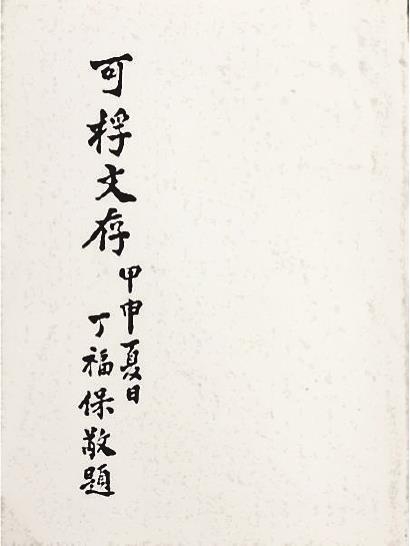 可桴文存
甲申夏日
丁福保敬題